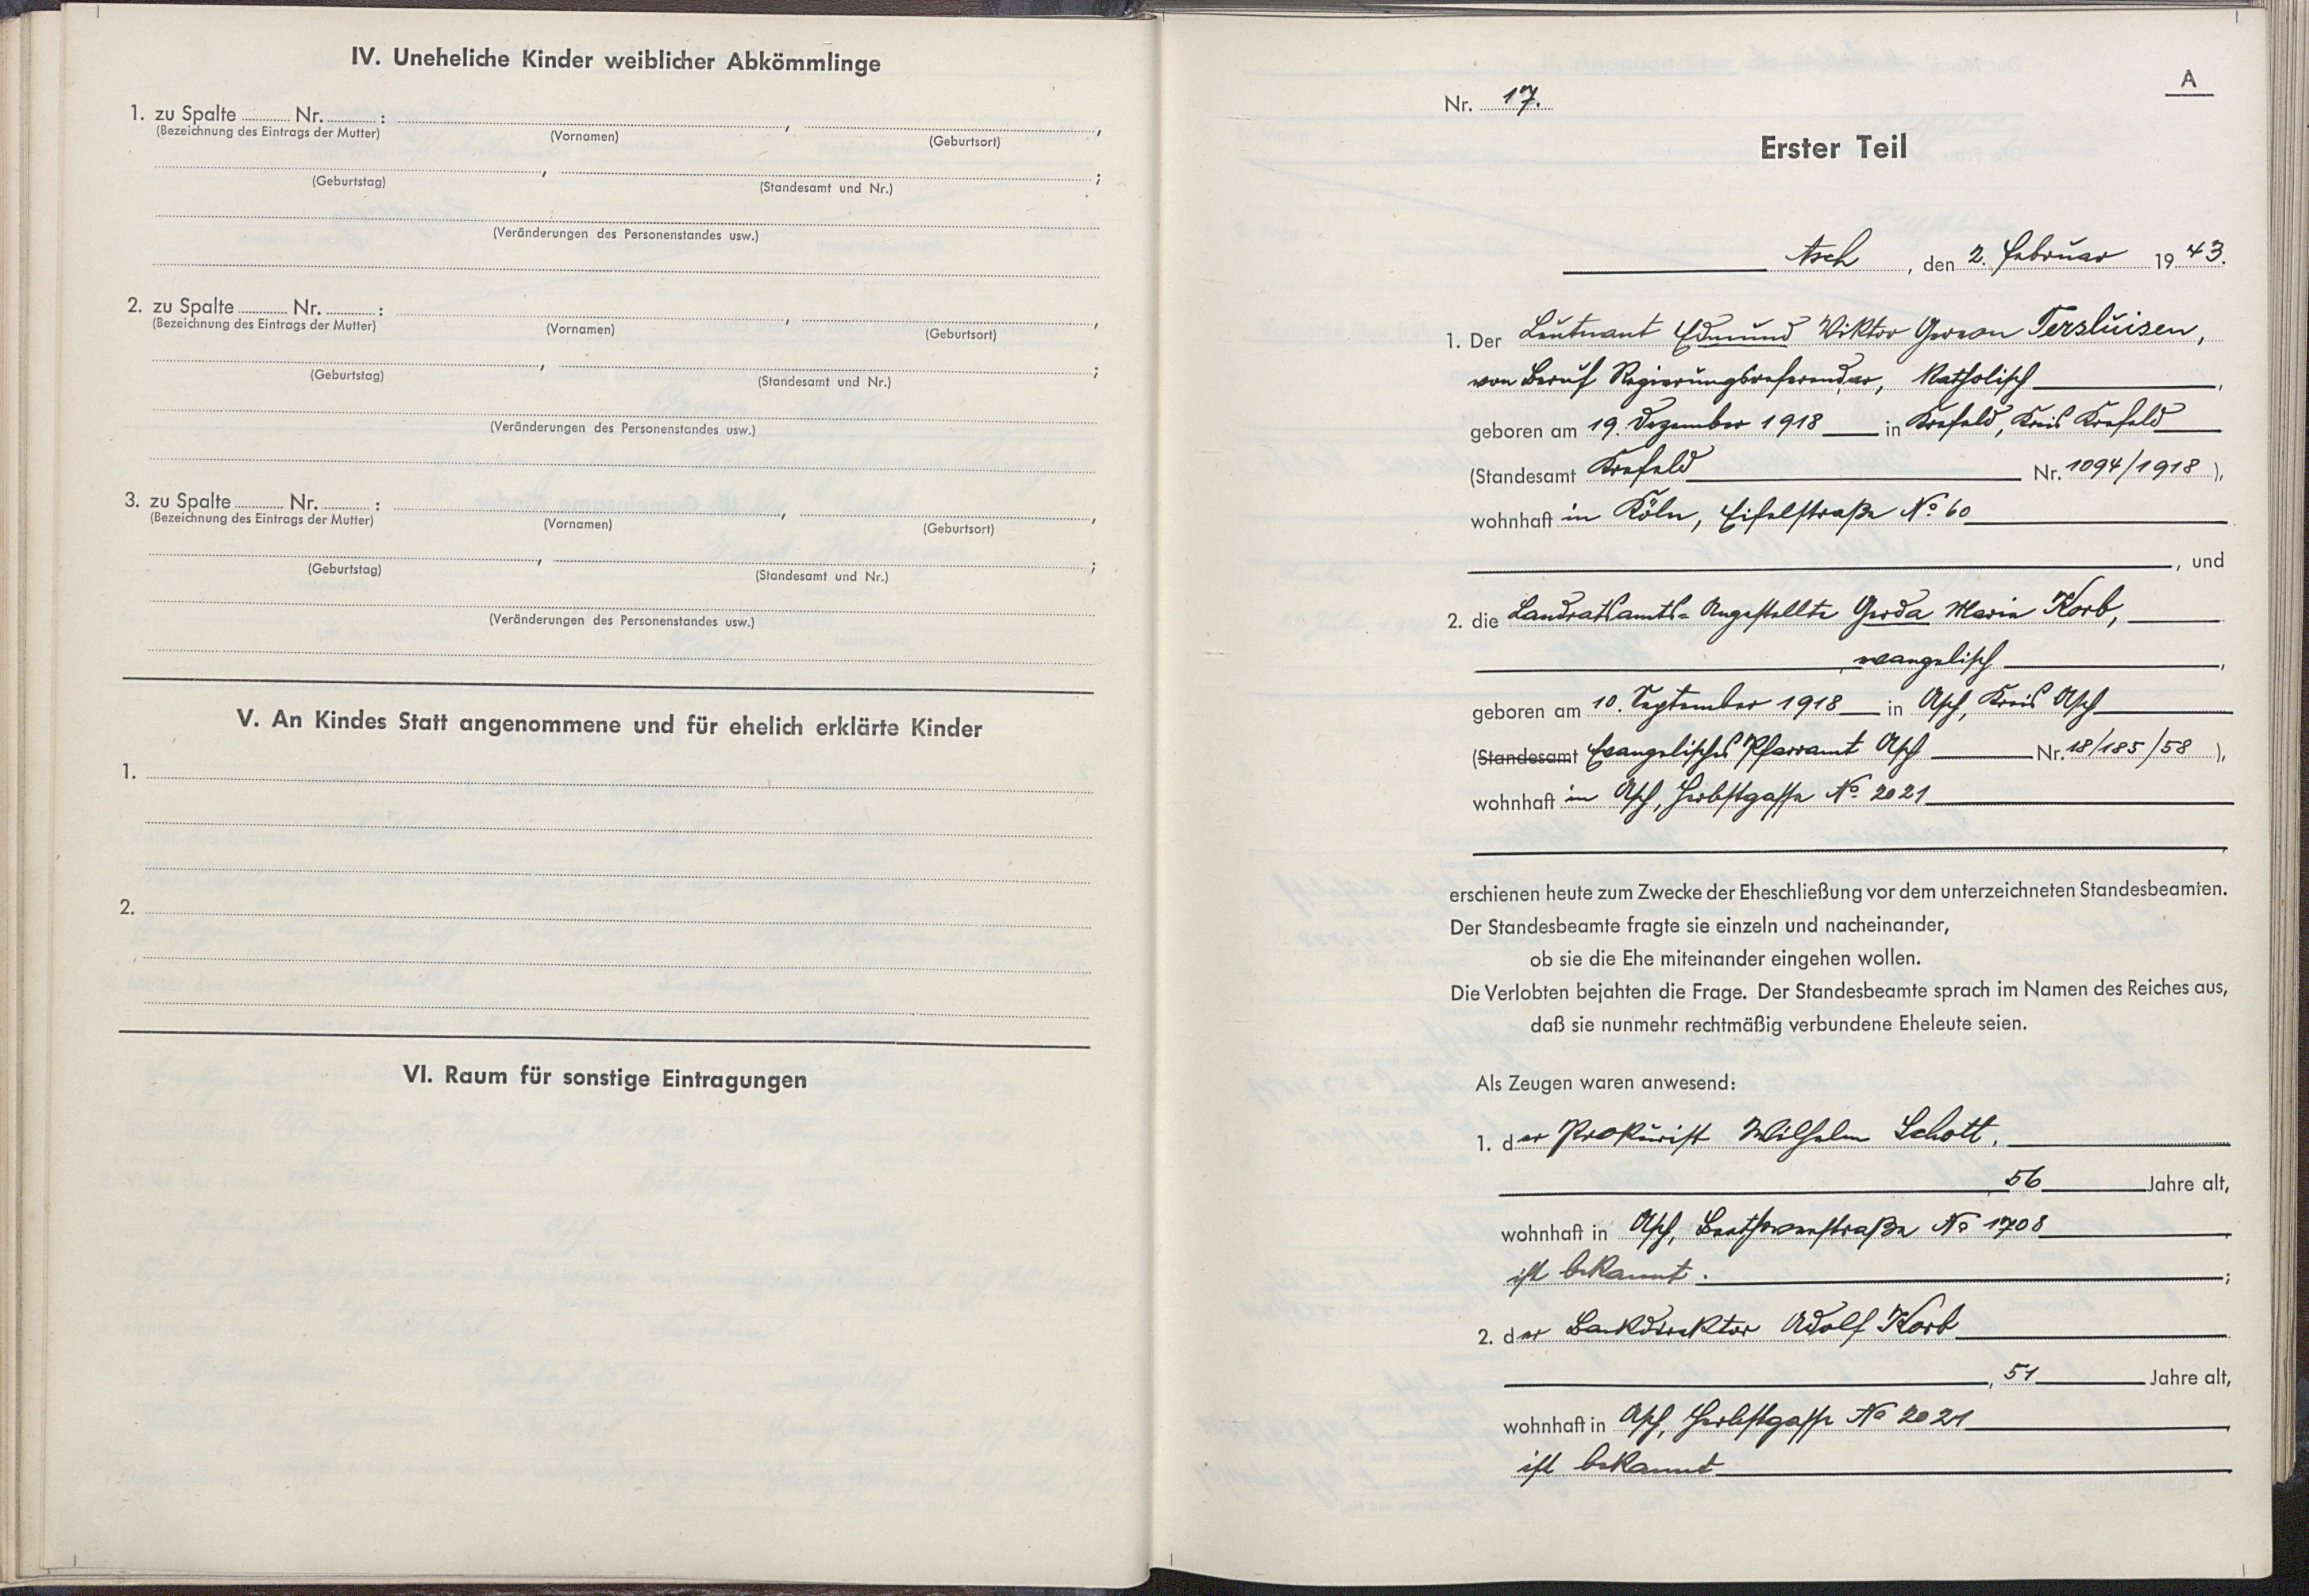 IV. Uneheliche Kinder weiblicher Abkömmlinge
1. zu Spalte ........ Nr. ........ : ........ , ........ ,
(Bezeichnung des Eintrags der Mutter) (Vornamen) (Geburtsort)
........ , ........ ;
(Geburtstag) (Standesamt und Nr.)
(Veränderungen des Personenstandes usw.)
2. zu Spalte ........ Nr. ........ : ........ , ........ ,
(Bezeichnung des Eintrags der Mutter) (Vornamen) (Geburtsort)
........ , ........ ;
(Geburtstag) (Standesamt und Nr.)
(Veränderungen des Personenstandes usw.)
3. zu Spalte ........ Nr. ........ : ........ , ........ ,
(Bezeichnung des Eintrags der Mutter) (Vornamen) (Geburtsort)
........ , ........ ;
(Geburtstag) (Standesamt und Nr.)
(Veränderungen des Personenstandes usw.)
V. An Kindes Statt angenommene und für ehelich erklärte Kinder
1.
2.
VI. Raum für sonstige Eintragungen
A
Nr. 17.
Erster Teil
Asch, den 2. Februar 1943.
1. Der Leutnant Edmund Wiktor Gereon Tersluisen,
von Beruf Regierungsreferendar, katholisch,
geboren am 19. Dezember 1918 in Krefeld, Kreis Krefeld
(Standesamt Krefeld Nr. 1094/1918),
wohnhaft in Köln, Eifelstraße No 60
, und
2. die Landratsamts-Angestellte Gerda Maria Korb,
evangelisch,
geboren am 10. September 1918 in Asch, Kreis Asch
(Standesamt Evangelisches Pfarramt Asch Nr. 18/185/58),
wohnhaft in Asch, Herbstgasse No 2021
,
erschienen heute zum Zwecke der Eheschließung vor dem unterzeichneten Standesbeamten.
Der Standesbeamte fragte sie einzeln und nacheinander,
ob sie die Ehe miteinander eingehen wollen.
Die Verlobten bejahten die Frage. Der Standesbeamte sprach im Namen des Reiches aus,
daß sie nunmehr rechtmäßig verbundene Eheleute seien.
Als Zeugen waren anwesend:
1. der Prokurist Wilhelm Schott,
56 Jahre alt,
wohnhaft in Asch, Beethovenstraße No 1708,
ist bekannt. ;
2. der Bankdirektor Adolf Korb
, 51 Jahre alt,
wohnhaft in Asch, Herbstgasse No 2021,
ist bekannt